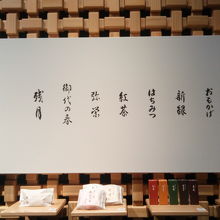 おもかげ
新緑
はちみつ
紅茶
弥栄
御代の春
残月